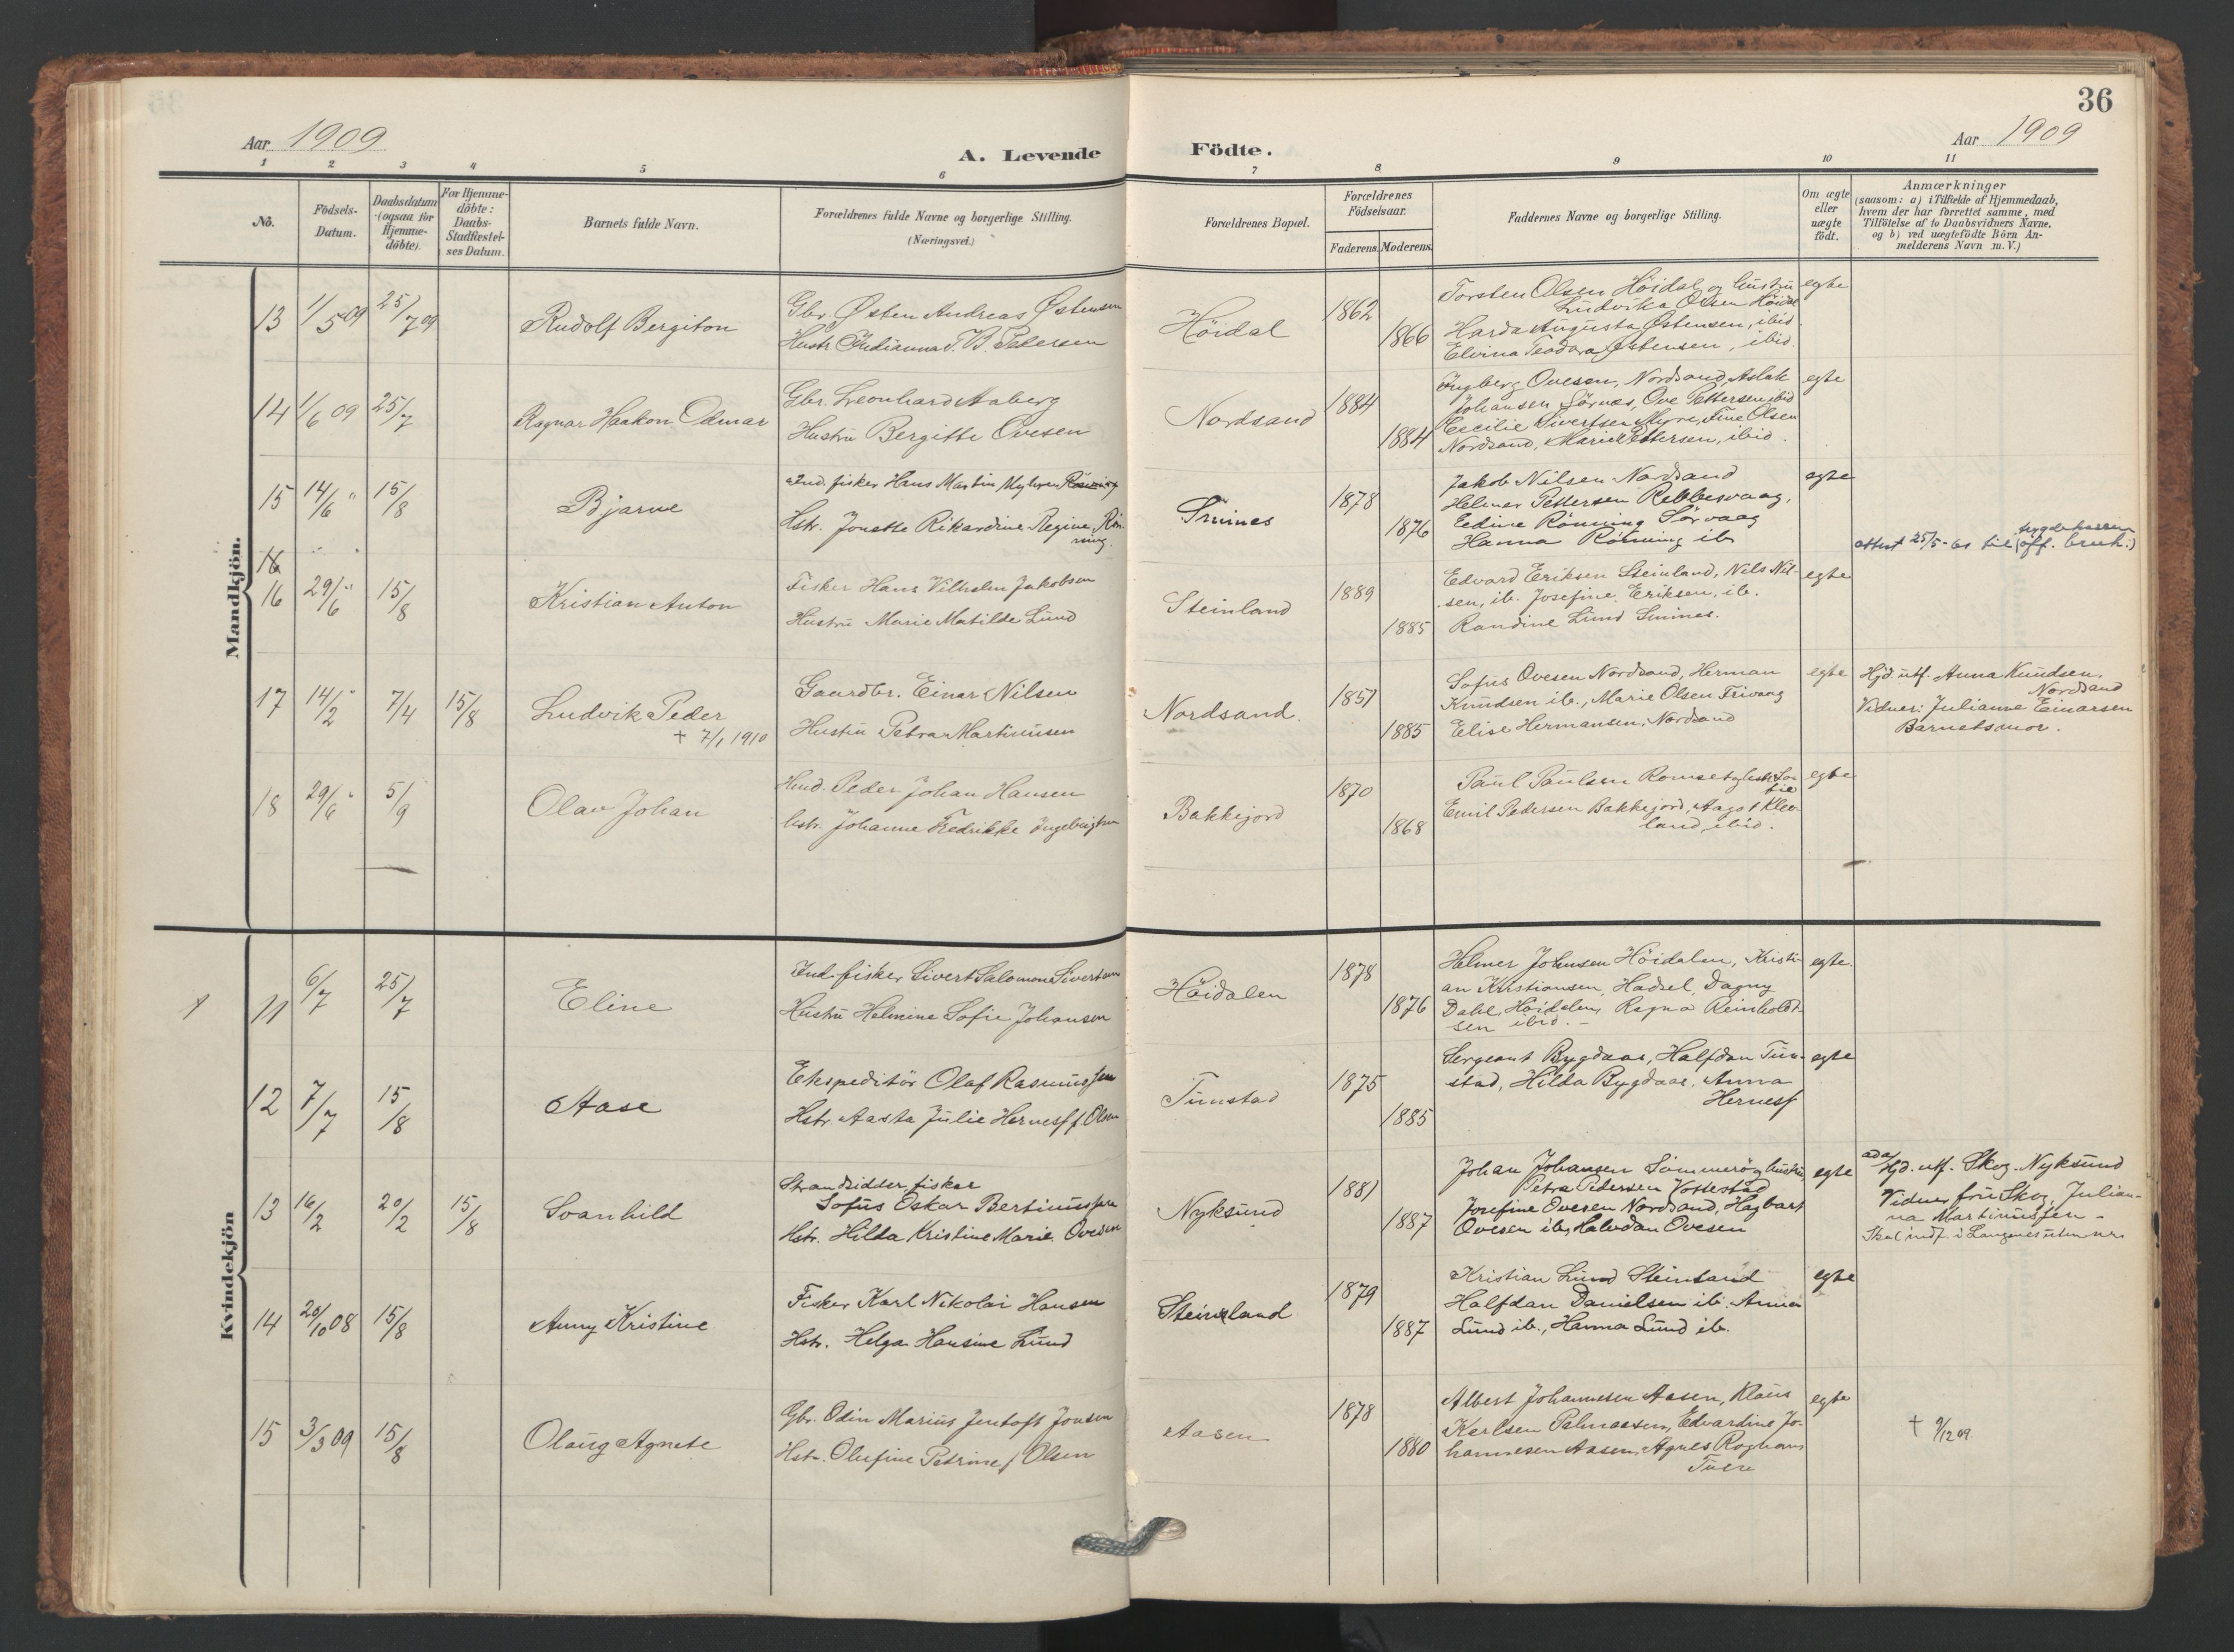 36
Aar 1909
A. Levende Födte.
Aar 1909
1 2 3 4 5 6 7 8 9 10 11
No.
Födsels-
Datum.
Daabsdatum
(ogsaa for
Hjemme-
döbte).
For Hjemme-
döbte:
Daabs-
Stadfæstel-
ses Datum.
Barnets fulde Navn.
Forældrenes fulde Navne og borgerlige Stilling.
(Næringsvei.)
Forældrenes Bopæl.
Forældrenes
Födselsaar.
Faderens. Moderens.
Faddernes Navne og borgerlige Stilling.
Om ægte
eller
uægte
födt.
Anmærkninger
(saasom: a) i Tilfælde af Hjemmedaab,
hvem der har forrettet samme, med
Tilföielse af to Daabsvidners Navne,
og b) ved uægtefödte Börn An-
melderens Navn m. V.)
Mandkjön.
13 1/5 09 25/7 09
Rudolf Bergiton
Gbr. Østen Andreas Østensen
Hustr. Indianna T. B. Pedersen
Höidal
1862
1866
Torsten Olsen Höidal og hustru
Ludvika Olsen Höidal
Harda Augusta Østensen, ibid.
Elvina Teodora Østensen, ibid.
egte
14 1/6 09 25/7
Ragnar Haakon Odmar
Gbr. Leonhard Aaberg
Hustru Bergitte Ovesen
Nordsand
1884
1884
Ingberg Ovesen, Nordsand, Aslak
Johansen Sörnes, Ove Pettersen ibid
Cecilie Sivertsen Myre, Fine Olsen
Nordsand, Marie Pettersen, ibid.
egte
15 14/6 " 15/8
Bjarne
Ind. fisker Hans Martin Myhren Rönning
Hstr. Jonette Rikardine Regine Rön-
ning.
Smines
1878
1876
Jakob Nilsen Nordsand
Helmer Pettersen Rebbesvaag,
Edine Rönning Sörvaag
Hanna Rönning ib
egte
attest 25/5-61 til trygdekassen
(off. bruk.)
16
16 29/6 " 15/8
Kristian Anton
Fisker Hans Vilhelm Jakobsen
Hustru Marie Matilde Lund
Steinland
1889
1885
Edvard Eriksen Steinland, Nils Nil-
sen, ib. Josefine Eriksen, ib.
Randine Lund Smines.
egte
17 14/2 " 7/4 15/8
Ludvik Peder
+ 7/1 1910
Gaardbr. Einar Nilsen
Hustru Petra Martinusen
Nordsand.
1851
1885
Sofus Ovesen Nordsand, Herman
Knudsen ib., Marie Olsen Frivaag
Elise Hermansen, Nordsand
egte
Hjd. utf. Anna Knudsen,
Nordsand
Vidner: Julianne Einarsen
Barnetsmor.
18 29/6 " 5/9
Olav Johan
Hmd. Peder Johan Hansen
hstr. Johanne Fredrikke Ingebrigtsen
Bakkejord
1870
1868
Paul Paulsen Romset og hstr. So-
fie
Emil Pedersen Bakkejord, Aagot Klev-
land, ibid.
egte
Kvindekjön
1
11 6/7 25/7
Eline
Ind. fisker Sivert Salomon Sivertsen
Hustru Helmine Sofie Johansen
Höidalen
1878
1876
Helmer Johnsen Höidalen, Kristi-
an Kristiansen, Hadsel, Dagny
Dahl, Höidalen, Ragna Reinholdt-
sen ibid.
egte.
12 7/7 15/8
Aase
Ekspeditör Olaf Rasmussen
Hstr. Aasta Julie Herness f. Olsen
Tunstad
1875
1885
Sergeant Bygdaas, Halfdan Tun-
stad, Hilda Bygdaas, Anna
Herness
egte
13 16/2 20/2 15/8
Svanhild
Strandsidder, fisker
Sofus Oskar Bertinussen
Hstr. Hilda Kristine Marie Ovesen
Nyksund
1881
1887
Johan Johansen Sommerö og hustru
Petra Pedersen Vottestad
Josefine Ovesen Nordsand, Hagbart
Ovesen ib, Halvdan Ovesen
egte
ad a)
Hjd. utf. Skog. Nyksund
Vidner fru Skog, Julian-
na Martinussen –
Skal indf. i Langenes uten nr.
14 20/10 08 15/8
Anny Kristine
Fisker Karl Nikolai Hansen
Hstr. Helga Hansine Lund
Steinland
1879
1887
Kristian Lund Steinland
Halfdan Danielsen ib. Anna
Lund ib., Hanna Lund ib.
egte
15 3/3 09 15/8
Olaug Agnete
Gbr. Odin Marius Jentoft Jonsen
Hstr. Olufine Petrine f. Olsen
Aasen
1878
1880
Albert Johannesen Aasen, Klaus
Karlsen Palmaasen, Edvardine Jo-
hannesen Aasen, Agnes Roghan
egte
+ 9/12 09